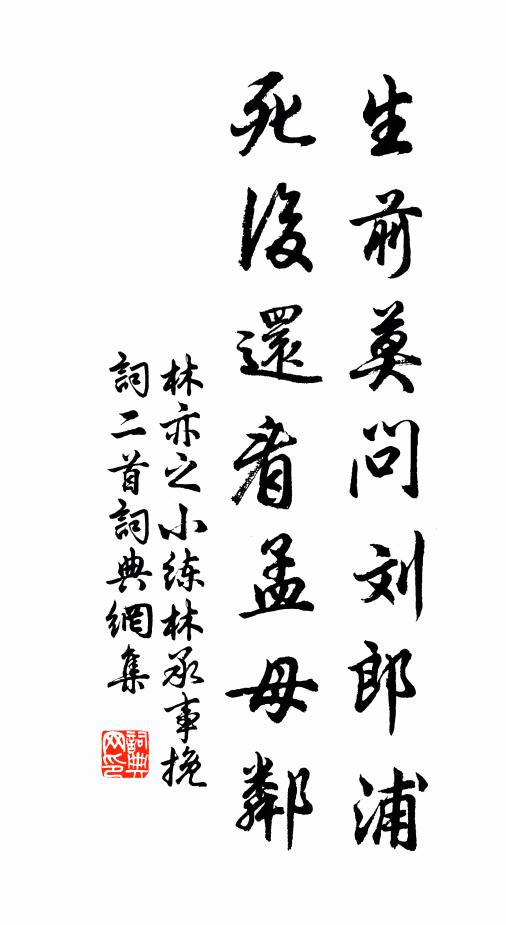 生前莫问刘郎浦
死後還看孟母鄰
林亦之小练林承事挽
詞二首詞典網集
詞典网印